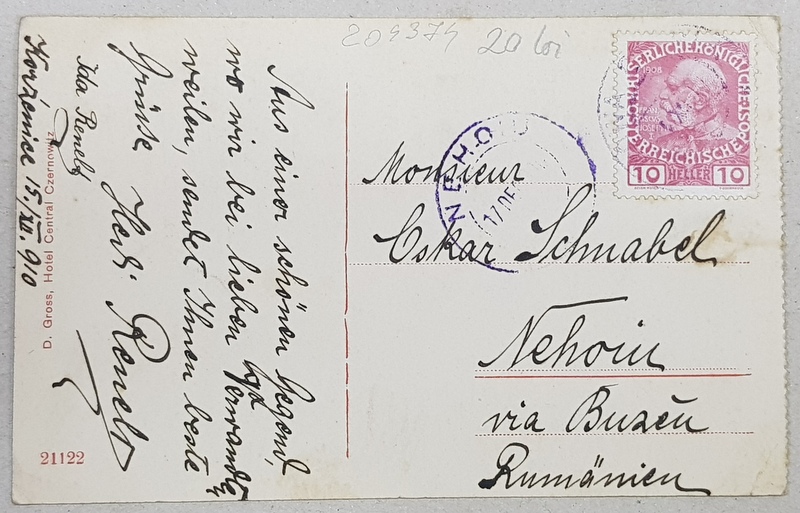 209374 20 lei
Aus einer schönen Gegend,
wo wir bei lieben Verwandten
weilen, sendet Ihnen beste
Grüsse Hedi Renelt
Ida Renelt
Korzenice 15./XII. 910
D. Gross, Hotel Central Czernowitz
21122
KAISERLICHEKÖNIGLICHE
ÖSTERREICHISCHE
1908
10 HELLER 10
NEHOIU
17 DEC
Monsieur
Oskar Schnabel
Nehoiu
via Buzĕu
Rumänien